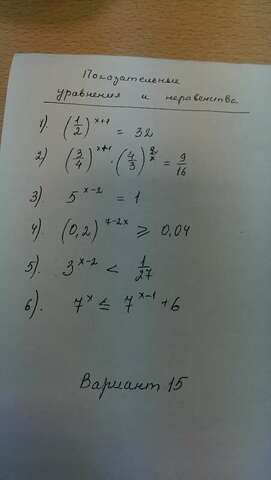 Показательные
уравнения и неравенства
1). (1/2)^(x+1) = 32
2) (3/4)^(x+1) · (4/3)^(8/x) = 9/16
3). 5^(x-2) = 1
4). (0,2)^(7-2x) ⩾ 0,04
5). 3^(x-2) < 1/27
6). 7^x ≤ 7^(x-1) + 6
Вариант 15